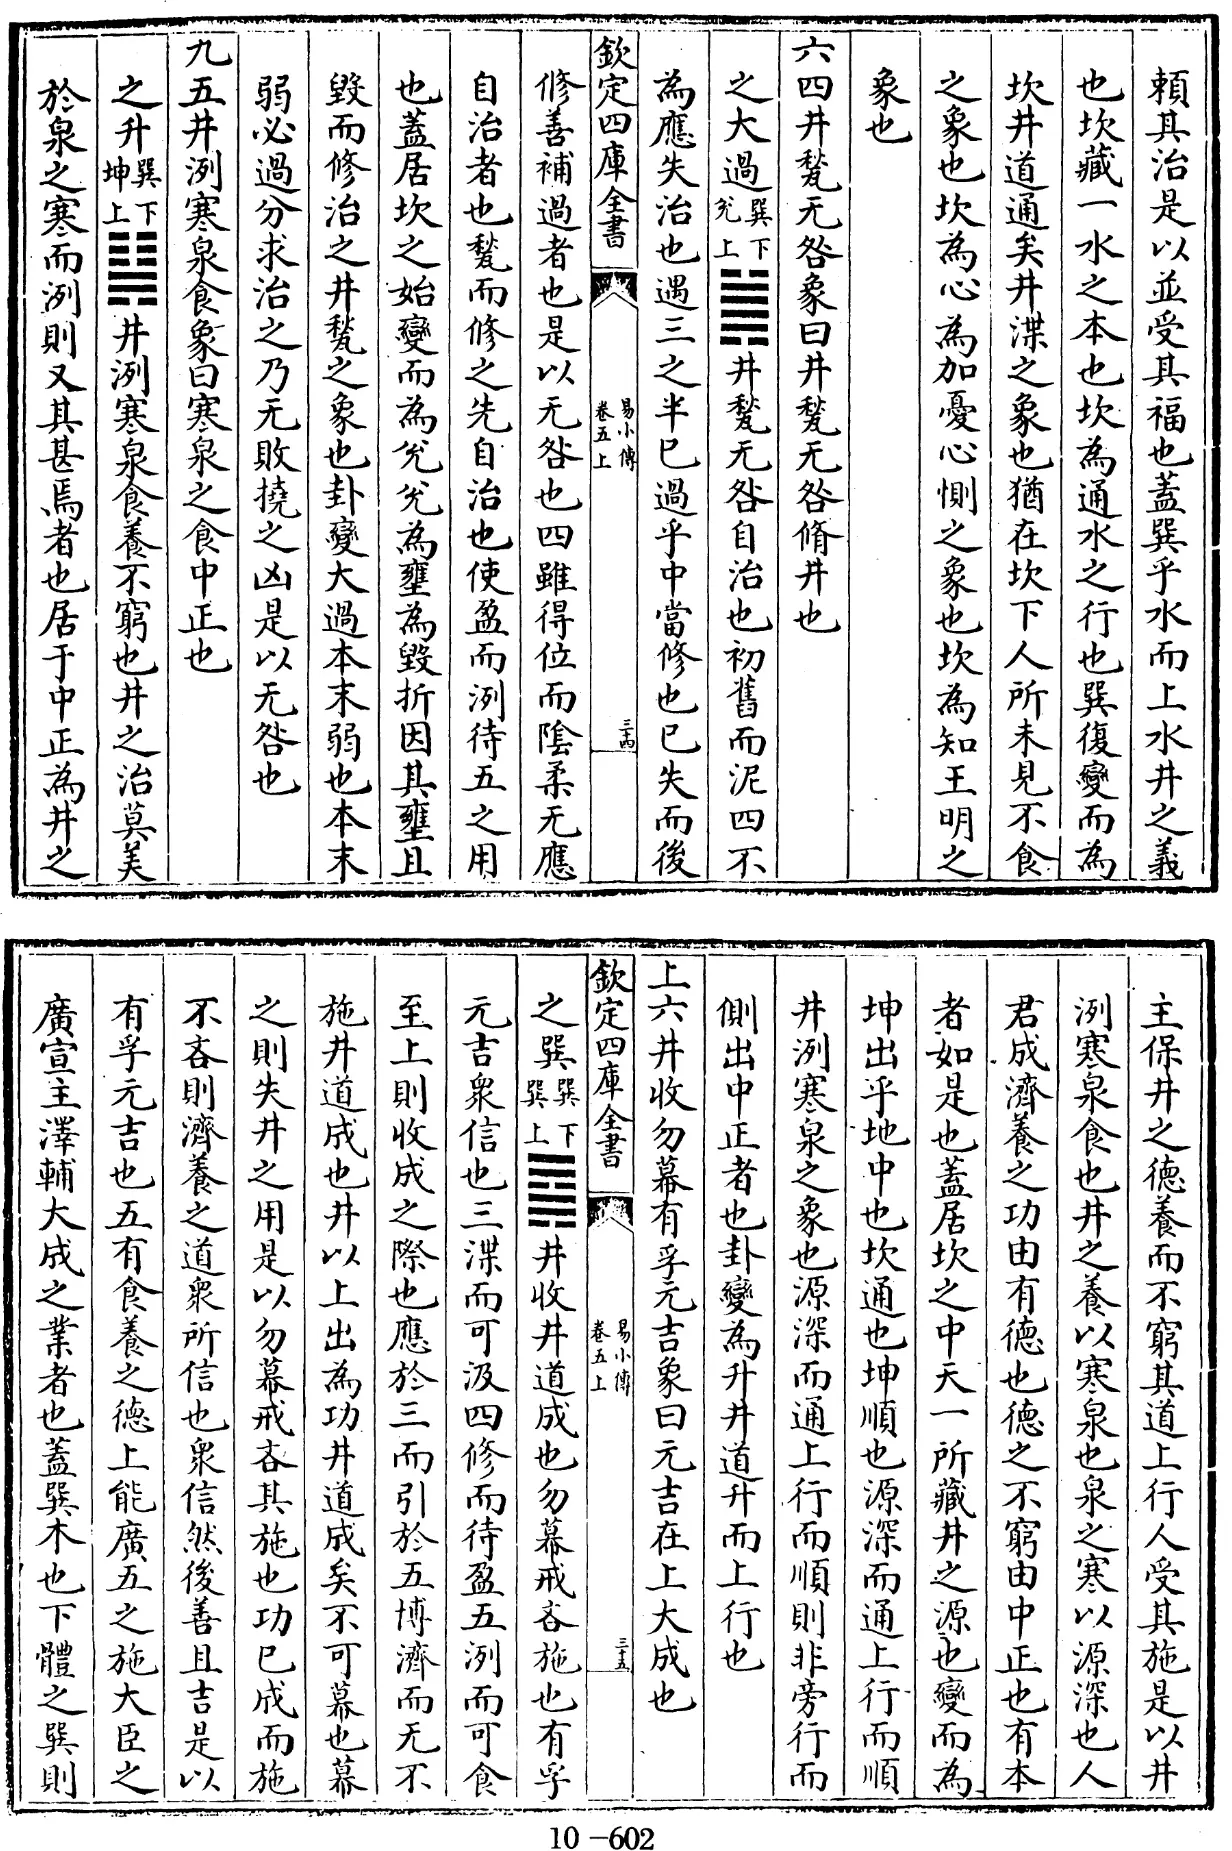 賴其治是以並受其福也蓋巽乎水而上水井之義
也坎藏一水之本也坎為通水之行也巽復變而為
坎井道通矣井渫之象也猶在坎下人所未見不食
之象也坎為心為加憂心惻之象也坎為知王明之
象也
六四井甃无咎象曰井甃无咎脩井也
之大過巽下兊上䷛井甃无咎自治也初舊而泥四不
為應失治也遇三之半已過乎中當修也已失而後
欽定四庫全書
易小傳
卷五上
三十四
修善補過者也是以无咎也四雖得位而陰柔无應
自治者也甃而修之先自治也使盈而洌待五之用
也蓋居坎之始變而為兊兊為壅為毀折因其壅且
毀而修治之井甃之象也卦變大過本末弱也本末
弱必過分求治之乃无敗撓之凶是以无咎也
九五井洌寒泉食象曰寒泉之食中正也
之升巽下坤上䷭井洌寒泉食養不窮也井之治莫美
於泉之寒而洌則又其甚焉者也居于中正為井之
主保井之德養而不窮其道上行人受其施是以井
洌寒泉食也井之養以寒泉也泉之寒以源深也人
君成濟養之功由有德也德之不窮由中正也有本
者如是也蓋居坎之中天一所藏井之源也變而為
坤出乎地中也坎通也坤順也源深而通上行而順
井洌寒泉之象也源深而通上行而順則非旁行而
側出中正者也卦變為升井道升而上行也
上六井收勿幕有孚元吉象曰元吉在上大成也
欽定四庫全書
易小傳
卷五上
三十五
之巽巽下巽上䷸井收井道成也勿幕戒吝施也有孚
元吉衆信也三渫而可汲四修而待盈五洌而可食
至上則收成之際也應於三而引於五博濟而无不
施井道成也井以上出為功井道成矣不可幕也幕
之則失井之用是以勿幕戒吝其施也功已成而施
不吝則濟養之道衆所信也衆信然後善且吉是以
有孚元吉也五有食養之德上能廣五之施大臣之
廣宣主澤輔大成之業者也蓋巽木也下體之巽則
10-602